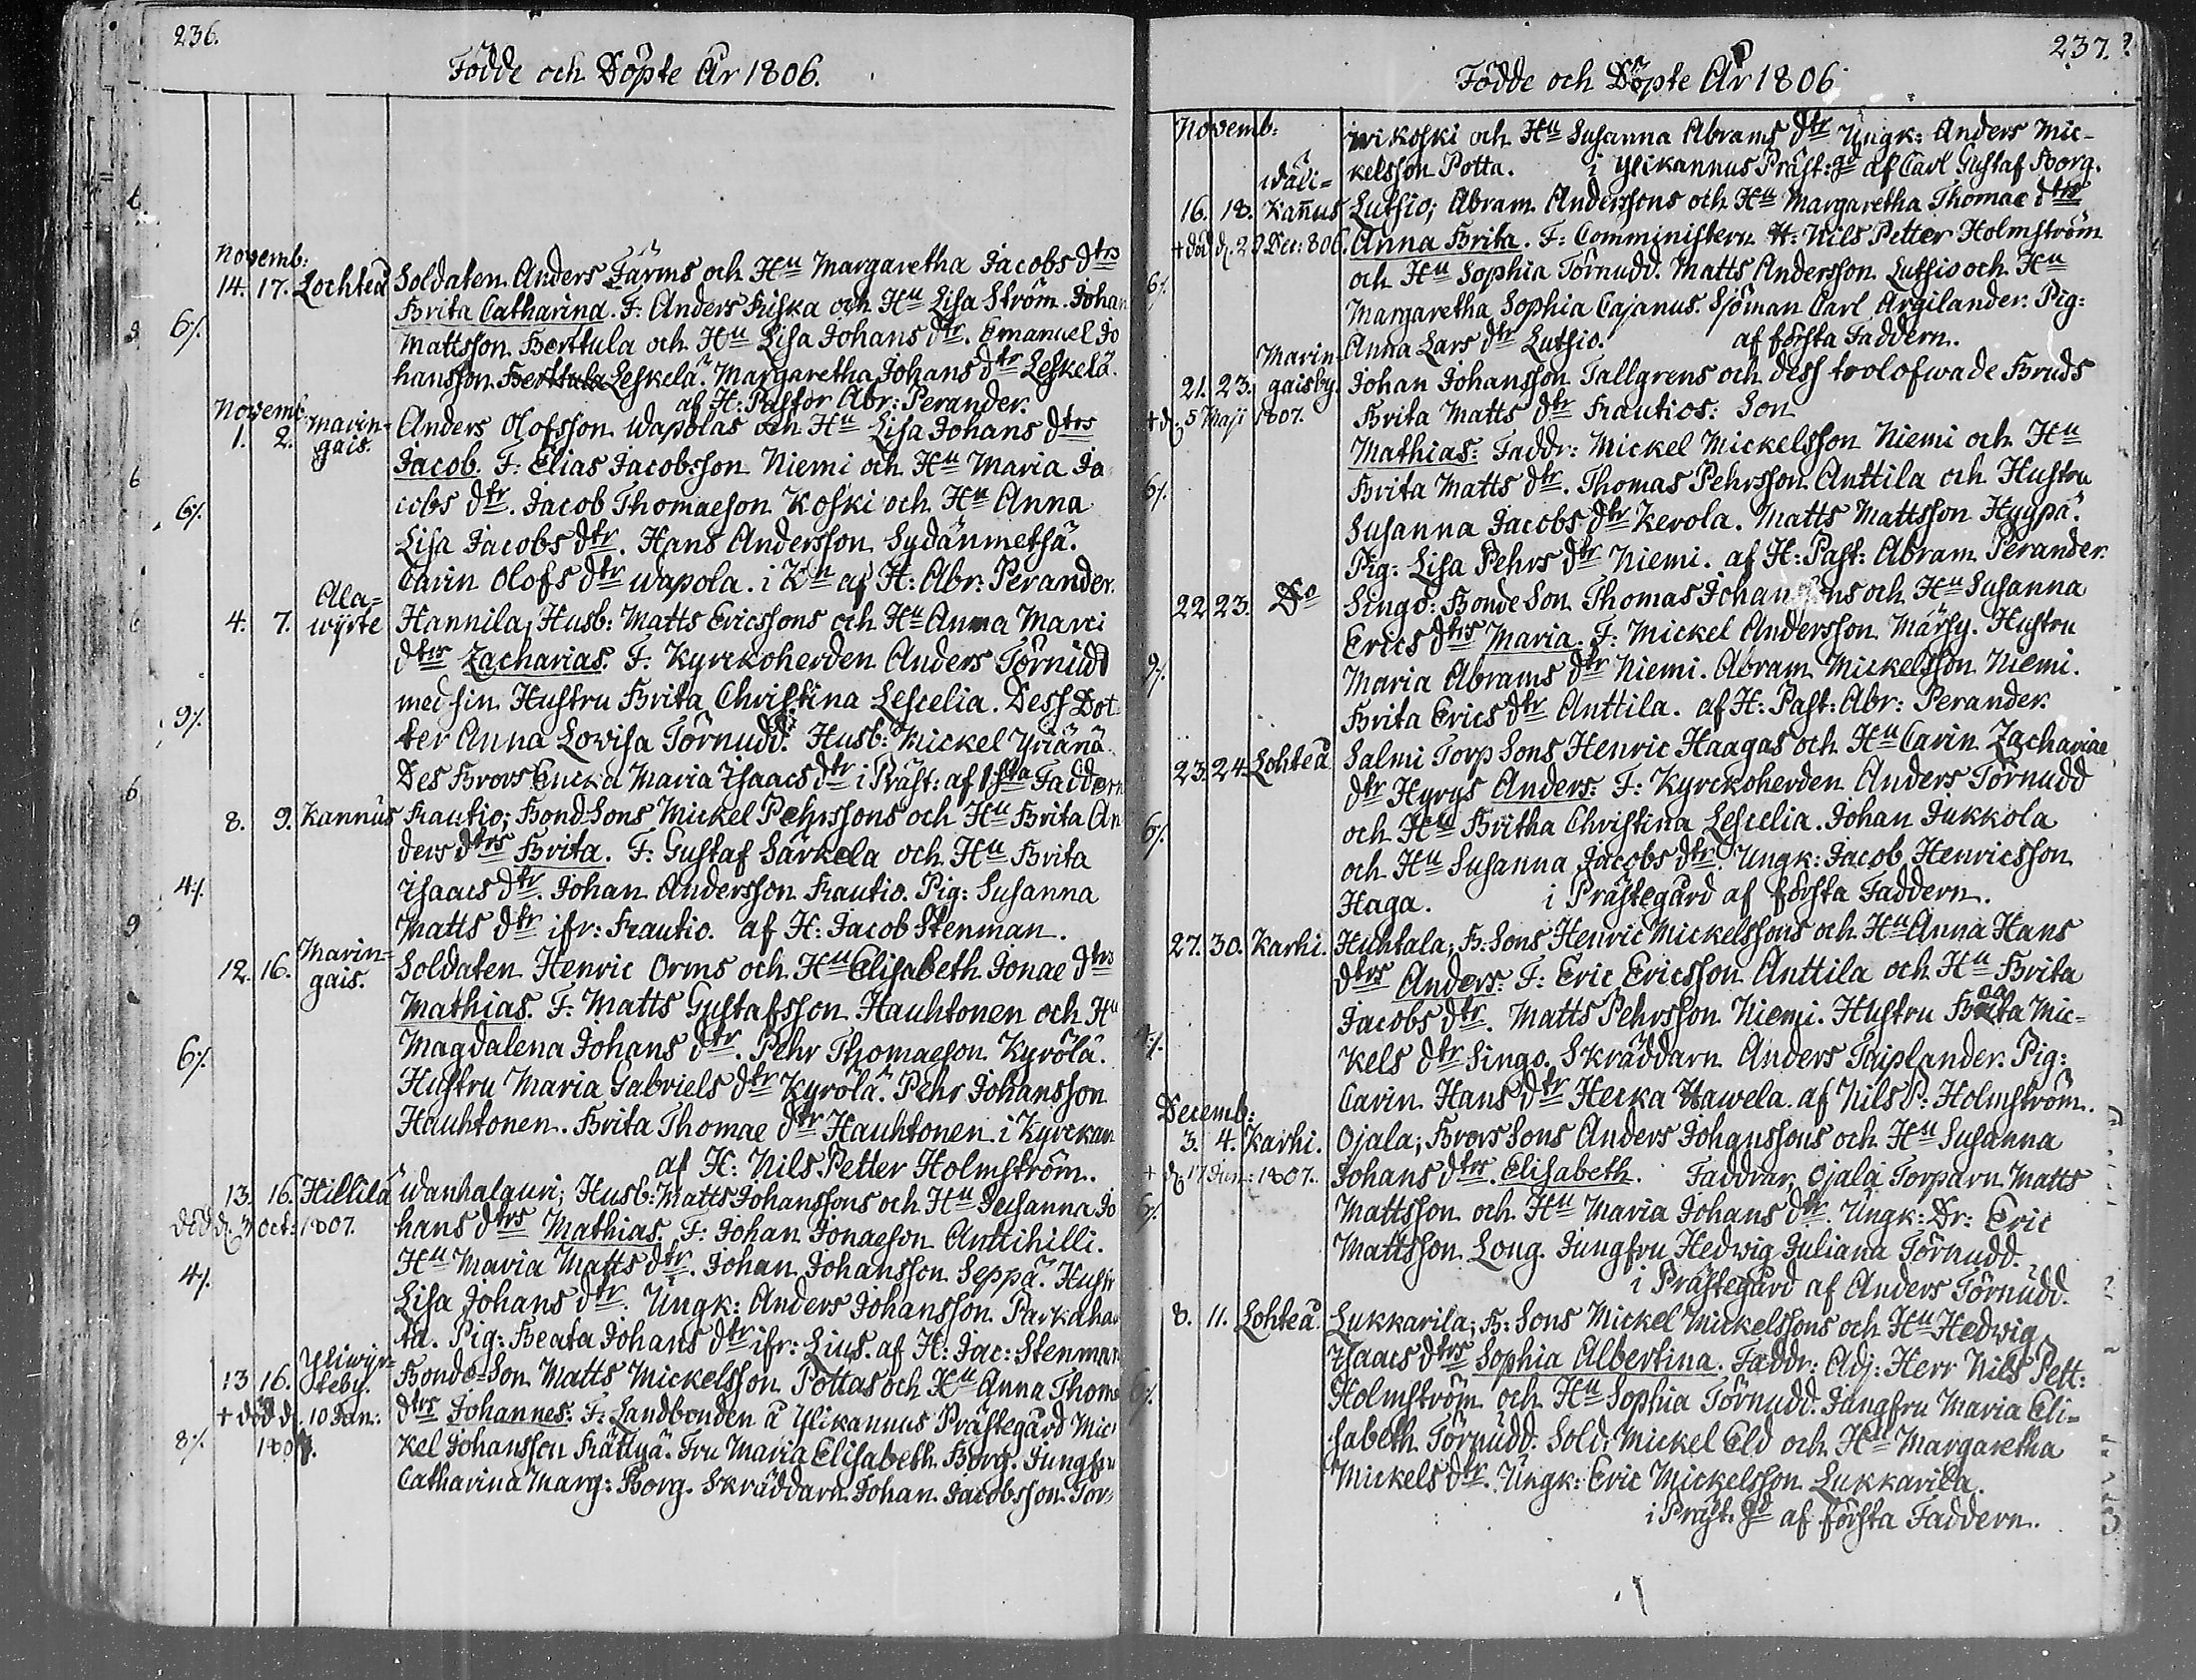 236.
Födde och Döpte År 1806.
Novemb:
14. 17. Lochteå Soldaten Anders Tärms och Hu Margaretha Jacobs dtrs
Brita Catharina. F: Anders Friska och Hu Lisa Ström. Johan
6/. Mattsson Berttula och Hu Lisa Johans dtr. Emanuel Jo
hansson Berttula Leskelä. Margaretha Johans dtr Leskelä.
af H: Pastor Abr: Perander.
Novemb:
1. 2. Marin-gais. Anders Olofsson Wapolas och Hu Lisa Johans dtrs
Jacob. F: Elias Jacobsson Niemi och Hu Maria Ja
6/. cobs dtr. Jacob Thomaeson Koski och Hu Anna
Lisa Jacobs dtr. Hans Andersson Sydänmetsä.
Carin Olofs dtr Wapola. i Kn af H: Abr: Perander.
4. 7. Ala-wyrte Hannila, Husb: Matts Ericssons och Hu Anna Marci
dtrs Zacharias. F. Kyrckoherden Anders Törnudd
med sin Hustru Brita Christina Lescelia. Dess Dot
9/. ter Anna Lovisa Törnudd. Husb: Mickel Yrjänä
Des Brors Encka Maria Isaacs dtr i Präst: af 1sta Faddern
8. 9. Kannus Frautio; Bond Sons Mickel Pehrssons och Hu Brita An
ders dtrs Brita. F: Gustaf Särkela och Hu Brita
4/. Isaacs dtr. Johan Andersson Frautio. Pig: Susanna
Matts dtr ifr: Frautio. af H: Jacob Stenman.
12. 16. Marin-gais. Soldaten Henric Orms och Hu Elisabeth Jonae dtrs
Mathias. F: Matts Gustafsson Hauhtonen och Hu
6/. Magdalena Johans dtr. Pehr Thomaeson Kyrölä.
Hustru Maria Gabriels dtr Kyrölä. Pehr Johansson
Hauhtonen. Brita Thomae dtr Hauhtonen i Kyrckan
af H: Nils Petter Holmström.
13. 16. Hillilä Wanhalauri; Husb: Matts Johanssons och Hu Susanna Jo
död d. 3 Oct: 1807. hans dtrs Mathias. F: Johan Jonaeson Anttihilli.
4/. Hu Maria Matts dtr. Johan Johansson Seppä. Hustr
Lisa Johans dtr. Ungk: Anders Johansson Parkaha
la. Pig: Beata Johans dtr ifr: Lius. af H: Jac: Stenman
13 16. Yliwyr-teby. Bonde-Son Matts Mickelsson Pottas och Hu Anna Thomae
+ död d. 10 Jan: dtrs Johannes: F: Landbonden å Ylikannus Prästegård Mic
8/. 1807. kel Johansson Krättyä. Fru Maria Elisabeth Borg. Jungfru
Catharina Marg: Borg. Skräddarn Johan Jacobsson Tor-
237.
Födde och Döpte År 1806
Novemb: wikoski och Hu Susanna Abrams dtr Ungk: Anders Mic-
kelsson Potta. i Ylikannus Präst:gd af Carl Gustaf Borg.
16. 18. Wäli-Kañus Luthio; Abram Anderssons och Hu Margaretha Thomae dtrs
+ död d. 29 Dec: 806. Anna Brita. F: Comministern H: Nils Petter Holmström
6/. och Hu Sophia Törnudd. Matts Andersson Luthio och Hu
Margaretha Sophia Cajanus. Sjöman Carl Argilander. Pig:
Anna Lars dtr Luthio. af första Faddern.
21. 23. Marin-gaisby. Johan Johansson Tallgrens och dess trolofwade Bruds
+ d. 5 Maji 1807. Brita Matts dtr Frautios: Son
Mathias: Faddr: Mickel Mickelsson Niemi och Hu
6/. Brita Matts dtr. Thomas Pehrsson Anttila och Hustru
Susanna Jacobs dtr Kerola. Matts Mattsson Hyypä.
Pig: Lisa Pehrs dtr Niemi. af H: Past: Abram Perander.
22 23. Do Singo: Bonde Son Thomas Johanssons och Hu Susanna
Erics dtrs Maria. F: Mickel Andersson Märsy. Hustru
9/. Maria Abrams dtr Niemi. Abram Mickelsson Niemi.
Brita Erics dtr Anttila. af H: Past: Abr: Perander.
23. 24. Lohteå Salmi Torp Sons Henric Haagas och Hu Carin Zachariae
dtr Hyrys Anders: F: Kyrckoherden Anders Törnudd
6/. och Hu Britha Christina Lescelia. Johan Jukkola
och Hu Susanna Jacobs dtr. Ungk: Jacob Henricsson
Haga. i Prästegård af första Faddern.
27. 30. Karhi. Huhtala; B: Sons Henric Mickelssons och Hu Anna Hans
dtrs Anders: F: Eric Ericsson Anttila och Hu Brita
Jacobs dtr. Matts Pehrsson Niemi. Hustru Brita Mic-
4/. kels dtr Singo. Skräddarn Anders Taiplander. Pig:
Carin Hans dtr Hecka Hawela af Nils P: Holmström.
Decemb:
3. 4. Karhi. Ojala; Brors Sons Anders Johanssons och Hu Susanna
+ d. 17 Jun: 1807. Johans dtrs Elisabeth. Faddrar, Ojala Torparn Matts
6/. Mattsson och Hu Maria Johans dtr. Ungk: Dr: Eric
Mattsson Long. Jungfru Hedwig Juliana Törnudd.
i Prästegård af Anders Törnudd.
8. 11. Lohteå. Lukkarila; B: Sons Mickel Mickelssons och Hu Hedwig
Isaacs dtrs Sophia Albertina. Faddr: Adj: Herr Nils Pett:
6/. Holmström och Hu Sophia Törnudd. Jungfru Maria Eli-
sabeth Törnudd. Sold: Mickel Eld och Hu Margaretha
Mickels dtr. Ungk: Eric Mickelsson Lukkarila.
i Präst. gd af första Faddern.